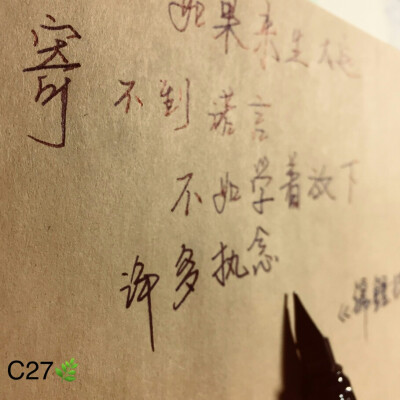 寄
如果来生太远
不到诺言
不如学着放下
许多执念
《锦鲤
C27🌿